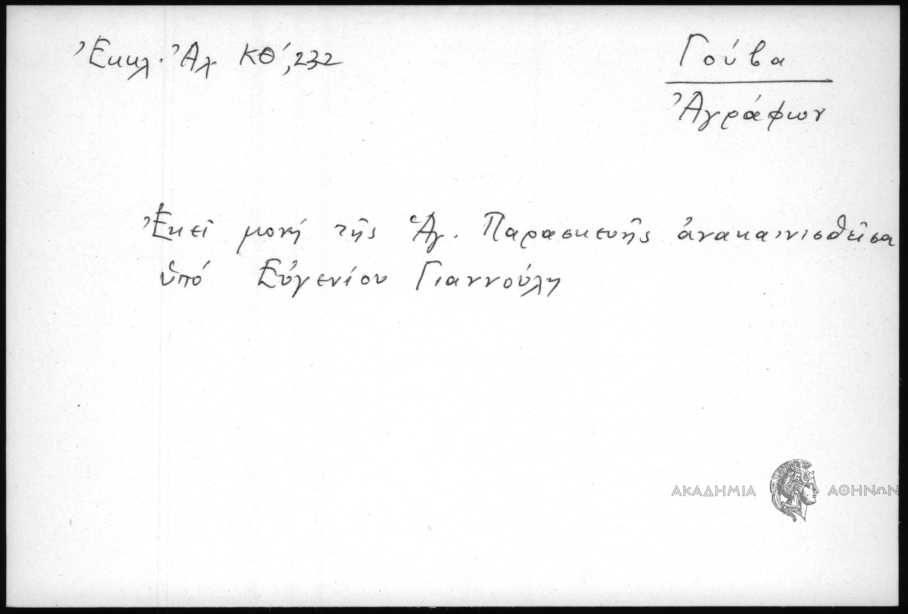 Ἐκκλ. Ἀλ. ΚΘ΄, 232
Γούβα
Ἀγράφων
Ἐκεῖ μονή τῆς Ἁγ. Παρασκευῆς ἀνακαινισθεῖσα
ὑπό Εὐγενίου Γιαννούλη
ΑΚΑΔΗΜΙΑ ΑΘΗΝΩΝ